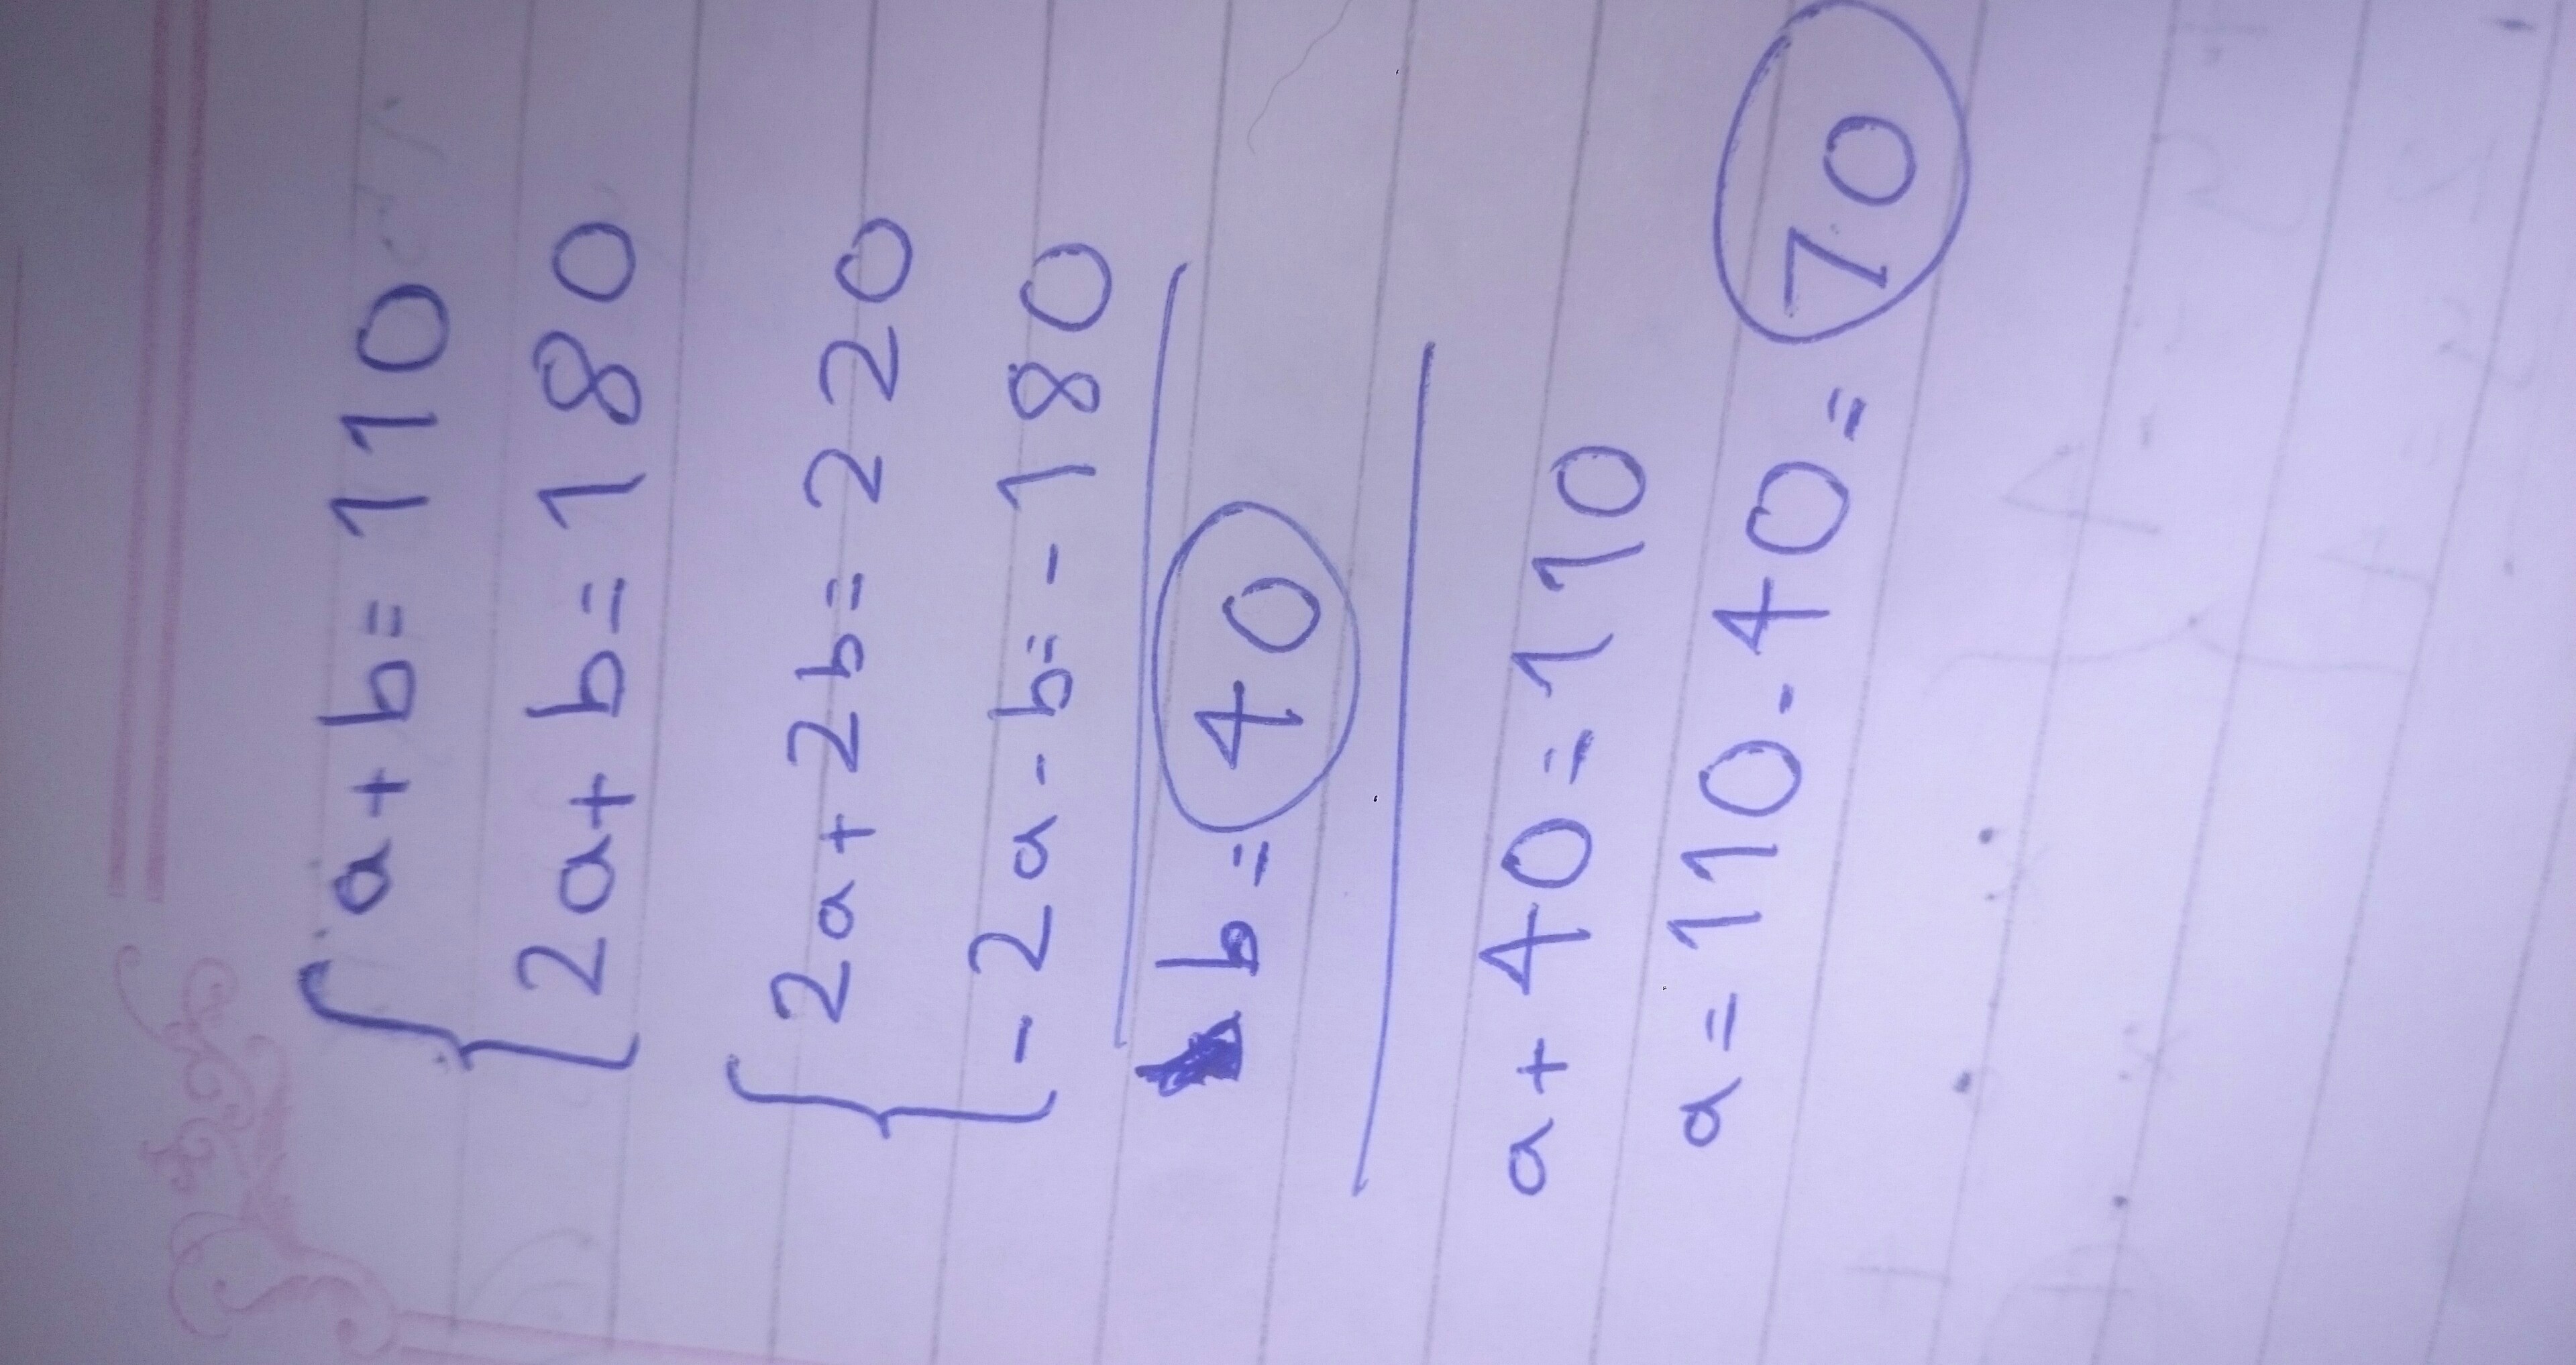 a + b = 110
2a + b = 180
2a + 2b = 220
-2a - b = -180
b = 40
a + 40 = 110
a = 110 - 40 = 70